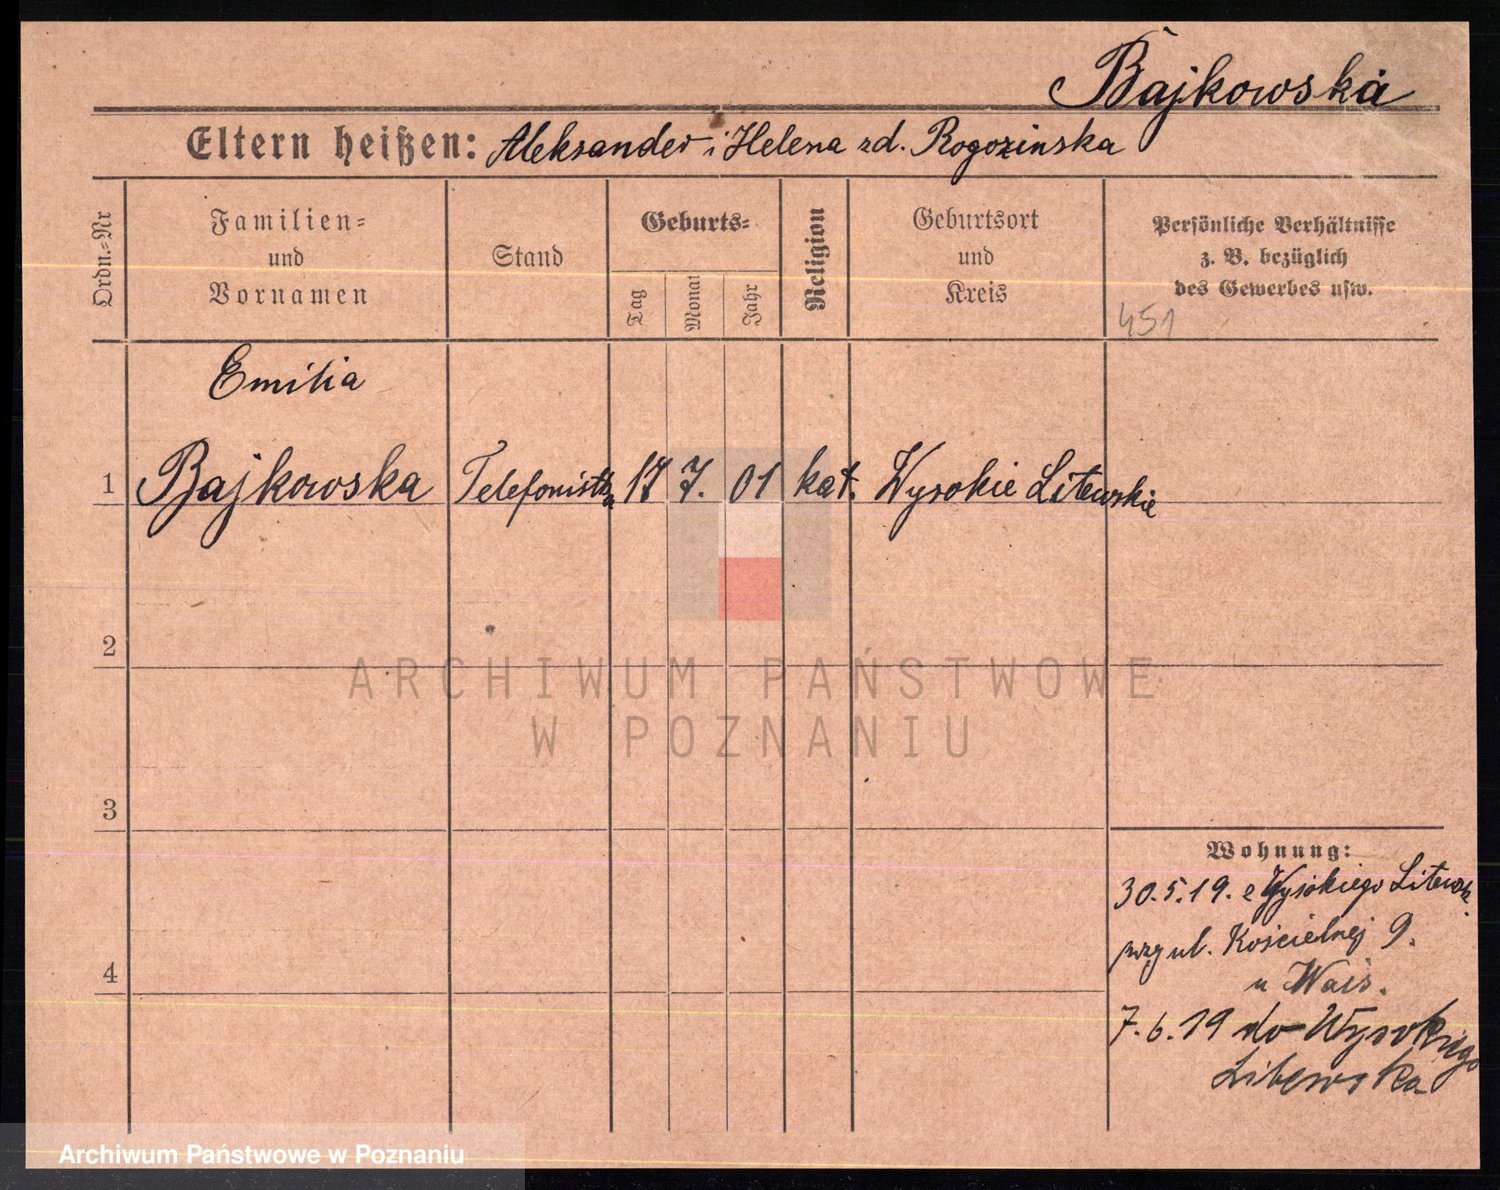 Bajkowska
Eltern heißen: Aleksander i Helena zd. Rogozinska
Ordn.-Nr
Familien-
und
Vornamen
Stand
Geburts-
Tag
Monat
Jahr
Religion
Geburtsort
und
Kreis
Persönliche Verhältnisse
z. B. bezüglich
des Gewerbes usw.
451
Emilia
1 Bajkowska Telefonistka 17 7. 01 kat. Wysokie Litewskie
2
3
4
Wohnung:
30.5.19. z Wysokiego Litewsk.
przy ul. Kościelnej 9.
u Wais.
7.6.19 do Wysokiego
Litewska
ARCHIWUM PAŃSTWOWE
W POZNANIU
Archiwum Państwowe w Poznaniu